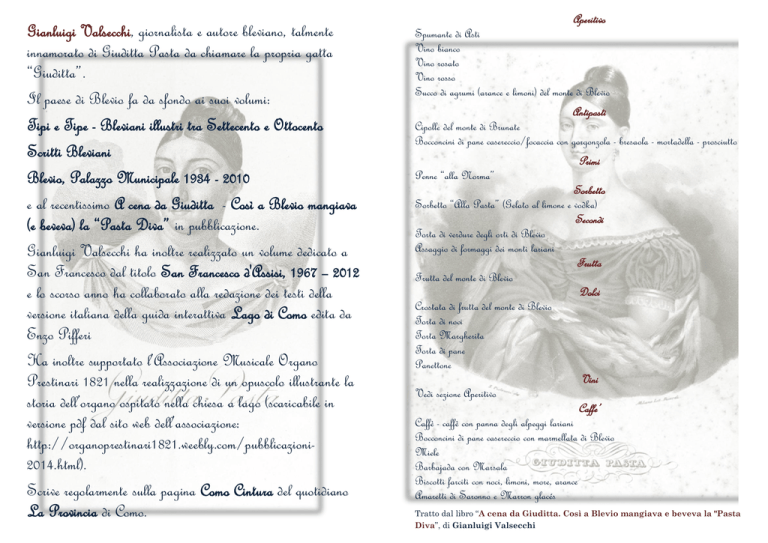 Gianluigi Valsecchi, giornalista e autore bleviano, talmente
innamorato di Giuditta Pasta da chiamare la propria gatta
“Giuditta”.
Il paese di Blevio fa da sfondo ai suoi volumi:
Tipi e Tipe - Bleviani illustri tra Settecento e Ottocento
Scritti Bleviani
Blevio, Palazzo Municipale 1934 - 2010
e al recentissimo A cena da Giuditta - Così a Blevio mangiava
(e beveva) la “Pasta Diva” in pubblicazione.
Gianluigi Valsecchi ha inoltre realizzato un volume dedicato a
San Francesco dal titolo San Francesco d'Assisi, 1967 – 2012
e lo scorso anno ha collaborato alla redazione dei testi della
versione italiana della guida interattiva Lago di Como edita da
Enzo Pifferi
Ha inoltre supportato l'Associazione Musicale Organo
Prestinari 1821 nella realizzazione di un opuscolo illustrante la
storia dell'organo ospitato nella chiesa a lago (scaricabile in
versione pdf dal sito web dell'associazione:
http://organoprestinari1821.weebly.com/pubblicazioni-
2014.html).
Scrive regolarmente sulla pagina Como Cintura del quotidiano
La Provincia di Como.
Aperitivo
Spumante di Asti
Vino bianco
Vino rosato
Vino rosso
Succo di agrumi (arance e limoni) del monte di Blevio
Antipasti
Cipolle del monte di Brunate
Bocconcini di pane casereccio/focaccia con gorgonzola - bresaola - mortadella - prosciutto
Primi
Penne “alla Norma”
Sorbetto
Sorbetto “Alla Pasta” (Gelato al limone e vodka)
Secondi
Torta di verdure degli orti di Blevio
Assaggio di formaggi dei monti lariani
Frutta
Frutta del monte di Blevio
Dolci
Crostata di frutta del monte di Blevio
Torta di noci
Torta Margherita
Torta di pane
Panettone
Vini
Vedi sezione Aperitivo
Caffe'
Caffè - caffè con panna degli alpeggi lariani
Bocconcini di pane casereccio con marmellata di Blevio
Miele
Barbajada con Marsala
Biscotti farciti con noci, limoni, more, arance
Amaretti di Saronno e Marron glacés
GIUDITTA PASTA
Tratto dal libro “A cena da Giuditta. Così a Blevio mangiava e beveva la “Pasta
Diva”, di Gianluigi Valsecchi